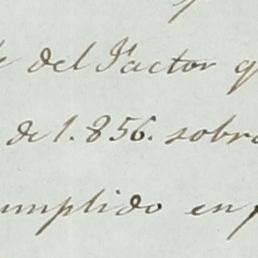 del Factor
de 1.856. sobre
cumplido en